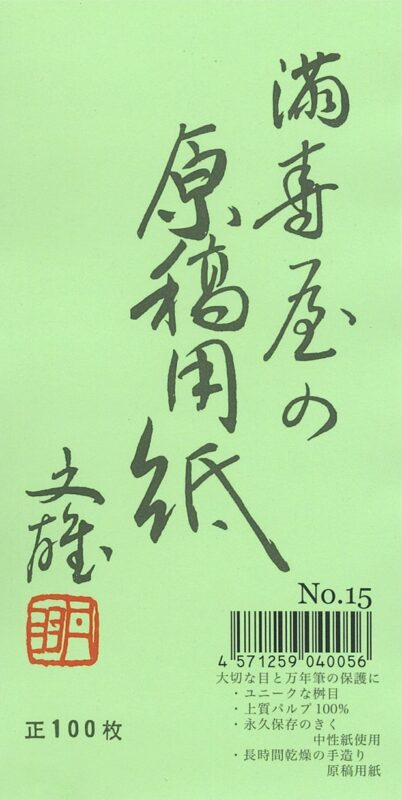 満寿屋の
原稿用紙
文雄
No.15
4 571259 040056
大切な目と万年筆の保護に
・ユニークな桝目
・上質パルプ100%
・永久保存のきく
中性紙使用
・長時間乾燥の手造り
原稿用紙
正100枚